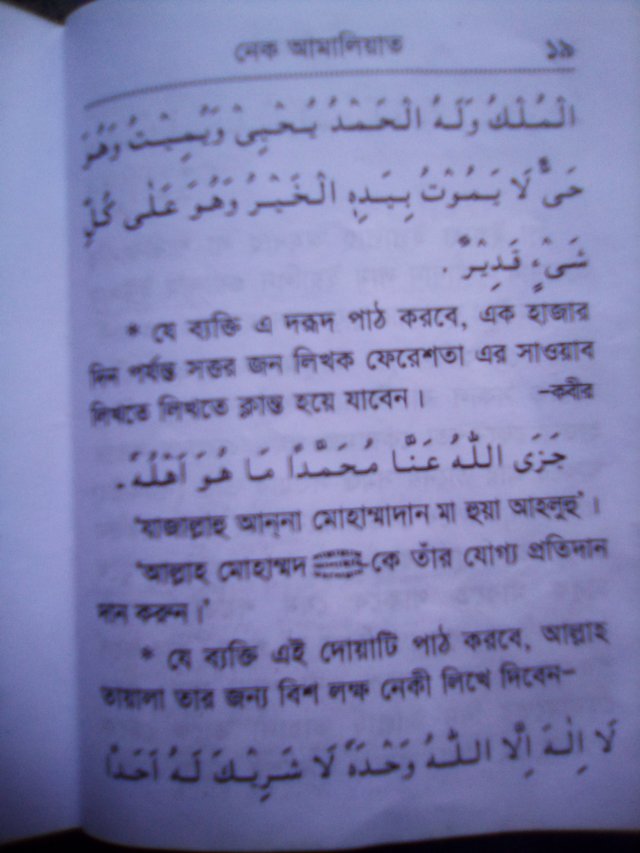 নেক আমালিয়াত ১৯
الْمُلْكُ وَلَهُ الْحَمْدُ يُحْيِىْ وَيُمِيْتُ وَهُوَ
حَىٌّ لَا يَمُوْتُ بِيَدِهِ الْخَيْرُ وَهُوَ عَلٰى كُلِّ
شَىْءٍ قَدِيْرٌ .
* যে ব্যক্তি এ দরূদ পাঠ করবে, এক হাজার
দিন পর্যন্ত সত্তর জন লিখক ফেরেশতা এর সাওয়াব
লিখতে লিখতে ক্লান্ত হয়ে যাবেন। -কবীর
جَزَى اللّٰهُ عَنَّا مُحَمَّدًا مَا هُوَ اَهْلُهٗ .
'যাজাল্লাহু আন্না মোহাম্মাদান মা হুয়া আহলুহু'।
'আল্লাহ মোহাম্মদ -কে তাঁর যোগ্য প্রতিদান
দান করুন।'
* যে ব্যক্তি এই দোয়াটি পাঠ করবে, আল্লাহ
তায়ালা তার জন্য বিশ লক্ষ নেকী লিখে দিবেন-
لَا اِلٰهَ اِلَّا اللّٰهُ وَحْدَهٗ لَا شَرِيْكَ لَهٗ اَحَدًا